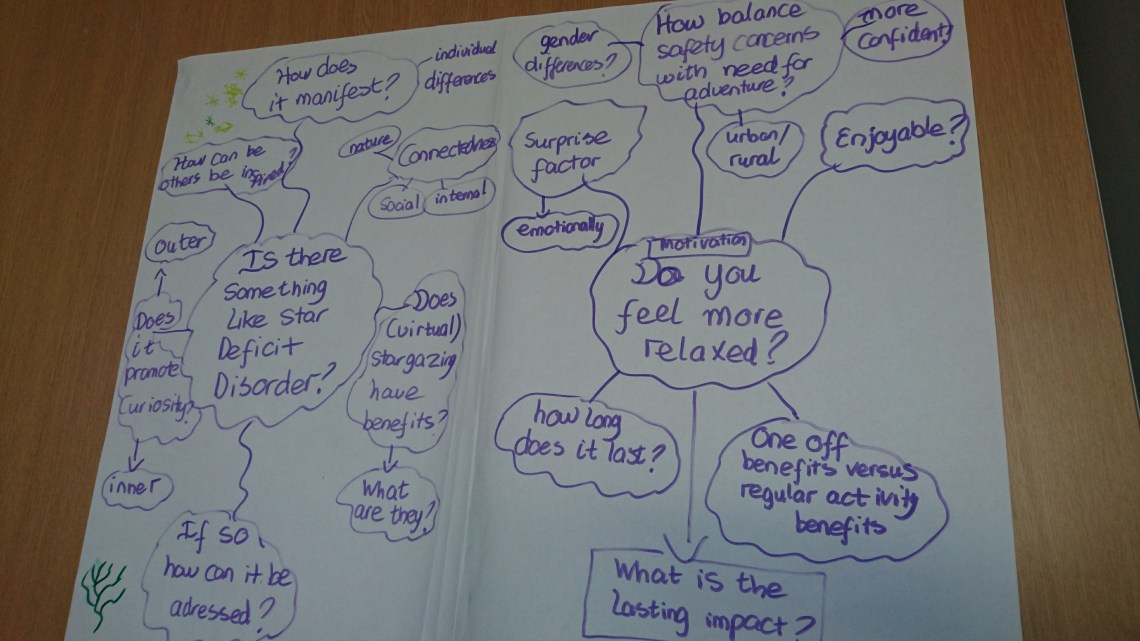 How does
it manifest?
individual
differences
How can be
others be inspired?
nature
Connectedness
social
internal
outer
Does
it
promote
curiosity?
inner
Is there
something
Like Star
Deficit
Disorder?
Does
(virtual)
stargazing
have
benefits?
What
are they?
If so
how can it be
adressed?
gender
differences?
How balance
safety concerns
with need for
adventure?
more
confident?
urban/
rural
Surprise
factor
emotionally
Enjoyable?
Motivation
Do you
feel more
relaxed?
how long
does it last?
One off
benefits versus
regular activity
benefits
What is the
lasting impact?